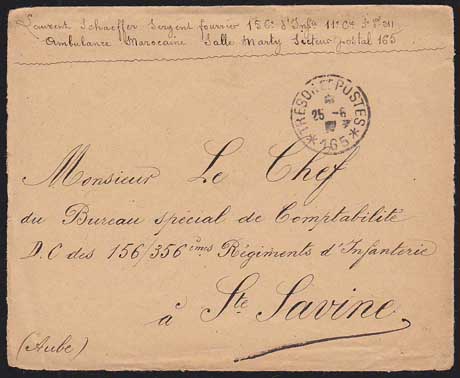 Laurent Schaeffer Sergent fourrier 156e d'Infie 11e Cie
Ambulance Marocaine Salle Marty Secteur postal 165
TRESOR ET POSTES
25 -6
*165*
Monsieur Le Chef
du Bureau spécial de Comptabilité
D.C des 156/356èmes Régiments d'Infanterie
à Ste Savine
(Aube)